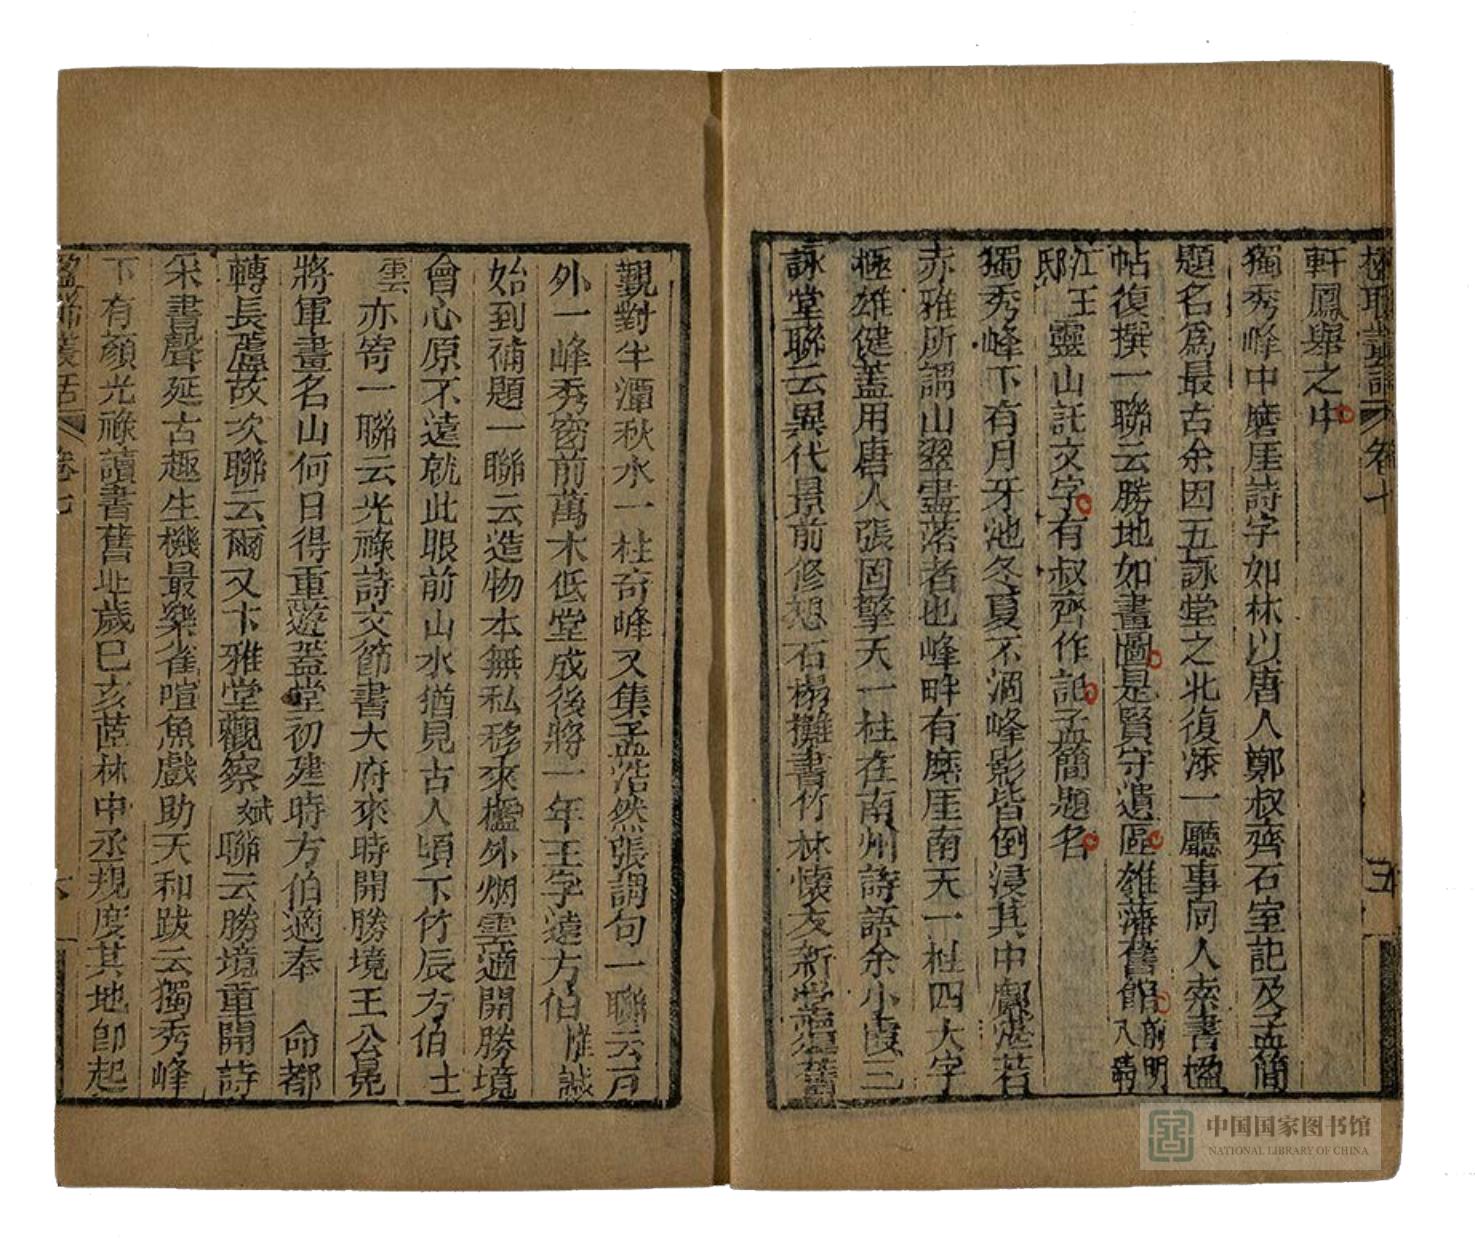 楹聯叢話 卷七 五
軒鳳舉之中
獨秀峰中磨厓詩字如林以唐人鄭叔齊石室記及孟簡
題名為最古余因五詠堂之北復添一廳事同人索書楹
帖復撰一聯云勝地如畫圖是賢守遺區雄藩舊館前明八靖
江王邸靈山託文字有叔齊作記孟簡題名
獨秀峰下有月牙池冬夏不涸峰影皆倒浸其中鄺湛若
赤雅所謂山翠盡落者也峰畔有磨厓南天一柱四大字
極雄健蓋用唐人張固擎天一柱在南州詩語余小霞三
詠堂聯云異代景前修想石榻攤書竹林懷友新堂蘊舊
觀對半潭秋水一柱奇峰又集孟浩然張謂句一聯云百
外一峰秀窗前萬木低堂成後將一年王字遠方伯惟誠
始到補題一聯云造物本無私移來檻外烟雲適開勝境
會心原不遠就此眼前山水猶見古人頃卞竹辰方伯士
雲亦寄一聯云光祿詩文節書大府來時開勝境王公晃
將軍畫名山何日得重遊蓋堂初建時方伯適奉 命都
轉長蘆故次聯云爾又卞雅堂觀察斌聯云勝境重開詩
朱書聲延古趣生機最樂雀喧魚戲助天和跋云獨秀峰
下有顏光祿讀書舊址歲己亥茝林中丞規度其地卽起
楹聯叢話 卷七 六
中国国家图书馆
NATIONAL LIBRARY OF CHINA